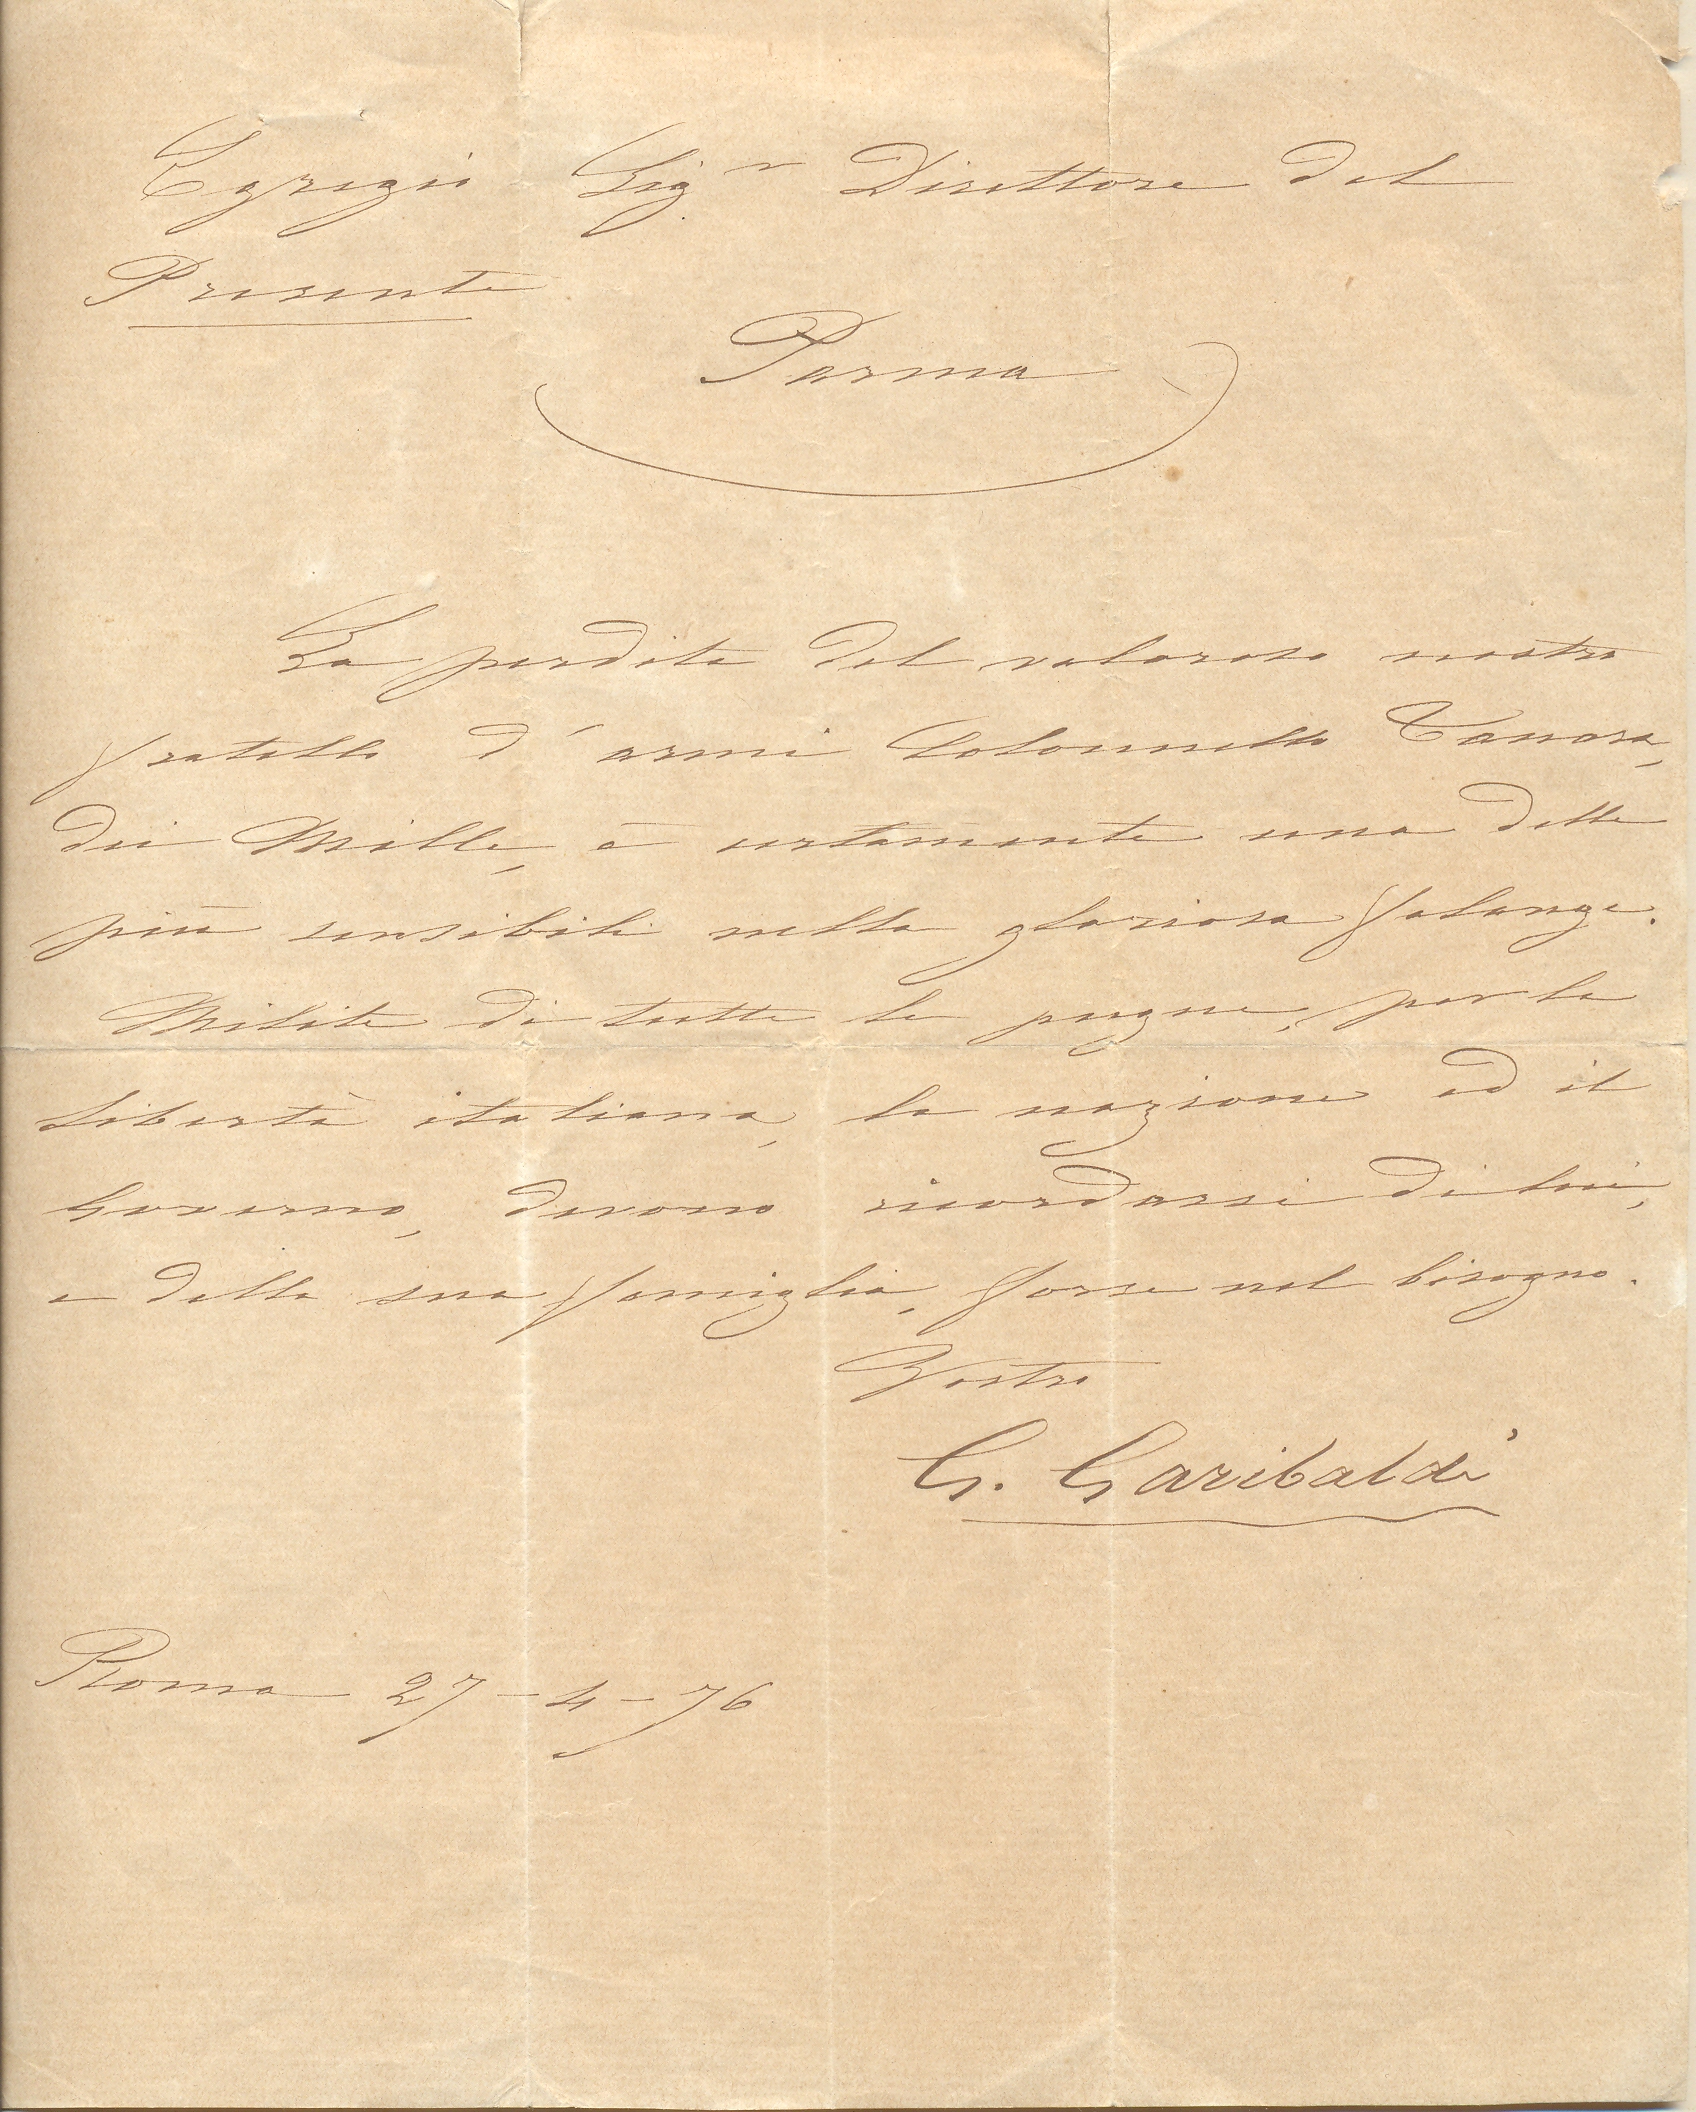 Egregio Sig.r Direttore del
Presente
Parma
La perdita del valoroso nostro
fratello d'armi Colonnello Tanara,
dei Mille, è certamente una delle
più sensibili nella gloriosa falange.
Milite di tutte le pugne, per la
libertà italiana, la nazione ed il
Governo, devono ricordarsi di lui,
e della sua famiglia, forse nel bisogno.
Vostro
G. Garibaldi
Roma 27-4-76